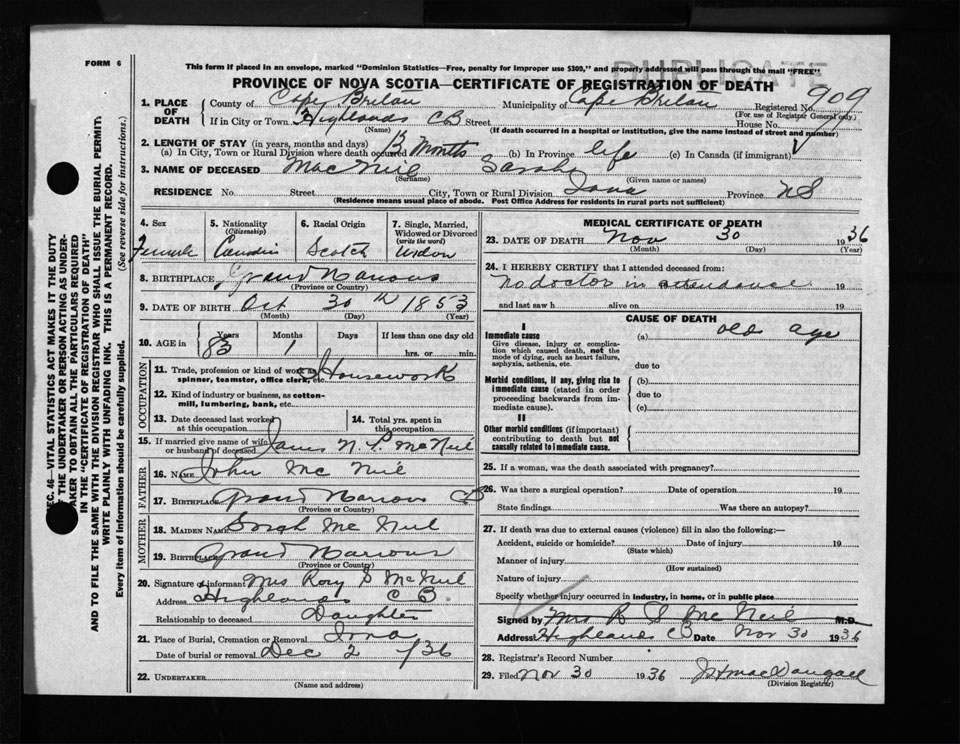 FORM 6
This form if placed in an envelope, marked "Dominion Statistics—Free, penalty for improper use $300," and properly addressed will pass through the mail "FREE"
PROVINCE OF NOVA SCOTIA—CERTIFICATE OF REGISTRATION OF DEATH
1. PLACE OF DEATH County of Cape Breton Municipality of Cape Breton Registered No. 909
(For use of Registrar General only)
If in City or Town Highlands CB Street House No.
(Name) (If death occurred in a hospital or institution, give the name instead of street and number)
2. LENGTH OF STAY (in years, months and days)
(a) In City, Town or Rural Division where death occurred Months (b) In Province life (c) In Canada (if immigrant)
3. NAME OF DECEASED MacNeil Sarah
(Surname) (Given name or names)
RESIDENCE No. Street City, Town or Rural Division Iona Province NS
(Residence means usual place of abode. Post Office Address for residents in rural parts not sufficient)
4. Sex Female
5. Nationality (Citizenship) Canadian
6. Racial Origin Scotch
7. Single, Married, Widowed or Divorced (write the word) Widow
8. BIRTHPLACE Grand Narrows
(Province or Country)
9. DATE OF BIRTH Oct 30th 1853
(Month) (Day) (Year)
10. AGE in Years Months Days If less than one day old
83 1 hrs. or min.
OCCUPATION
11. Trade, profession or kind of work as spinner, teamster, office clerk, etc. Housework
12. Kind of industry or business, as cotton-mill, lumbering, bank, etc.
13. Date deceased last worked at this occupation
14. Total yrs. spent in this occupation
15. If married give name of wife or husband of deceased James N. P. McNeil
FATHER
16. NAME John McNeil
17. BIRTHPLACE Grand Narrows CB
(Province or Country)
MOTHER
18. MAIDEN NAME Sarah McNeil
19. BIRTHPLACE Grand Narrows
(Province or Country)
20. Signature of informant Mrs Rory S McNeil
Address Highlands C B.
Relationship to deceased Daughter
21. Place of Burial, Cremation or Removal Iona
Date of burial or removal Dec 2 /36
22. UNDERTAKER
(Name and address)
MEDICAL CERTIFICATE OF DEATH
23. DATE OF DEATH Nov 30 1936
(Month) (Day) (Year)
24. I HEREBY CERTIFY that I attended deceased from:
No doctor in attendance 19
and last saw h alive on 19
CAUSE OF DEATH
I
Immediate cause (a) old age
Give disease, injury or complication which caused death, not the mode of dying, such as heart failure, asphyxia, asthenia, etc. due to
Morbid conditions, if any, giving rise to immediate cause (stated in order proceeding backwards from immediate cause). (b)
due to
(c)
II
Other morbid conditions (if important) contributing to death but not causally related to immediate cause.
25. If a woman, was the death associated with pregnancy?
26. Was there a surgical operation? Date of operation 19
State findings Was there an autopsy?
27. If death was due to external causes (violence) fill in also the following:
Accident, suicide or homicide? Date of injury 19
(State which)
Manner of injury
(How sustained)
Nature of injury
Specify whether injury occurred in industry, in home, or in public place
Signed by Mrs R S McNeil M.D.
Address Highlands CB Date Nov 30 1936
28. Registrar's Record Number
29. Filed Nov 30 1936
(Division Registrar)
SEC. 46—VITAL STATISTICS ACT MAKES IT THE DUTY
OF THE UNDERTAKER OR PERSON ACTING AS UNDER-
TAKER TO OBTAIN ALL THE PARTICULARS REQUIRED
IN THE "CERTIFICATE OF REGISTRATION OF DEATH"
AND TO FILE THE SAME WITH THE DIVISION REGISTRAR WHO SHALL ISSUE THE BURIAL PERMIT.
WRITE PLAINLY WITH UNFADING INK. THIS IS A PERMANENT RECORD.
Every item of information should be carefully supplied. (See reverse side for instructions.)